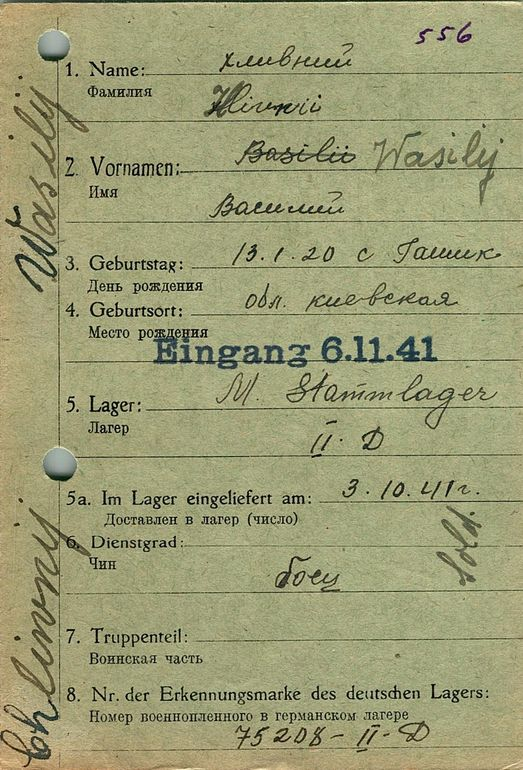 556
1. Name: хливний
Фамилия
Hlivnii
2. Vornamen: Basilii Wasilij
Имя
Василий
3. Geburtstag: 13.1.20 с Гашик
День рождения
4. Geburtsort: обл. киевская
Место рождения
Eingang 6.11.41
5. Lager: M. Stammlager
Лагер
II. D
5a. Im Lager eingeliefert am: 3.10.41 г.
Доставлен в лагер (число)
6. Dienstgrad:
Чин
боец
Sold.
7. Truppenteil:
Воинская часть
8. Nr. der Erkennungsmarke des deutschen Lagers:
Номер военнопленного в германском лагере
75208-II-D
Chlivnij Wasilij